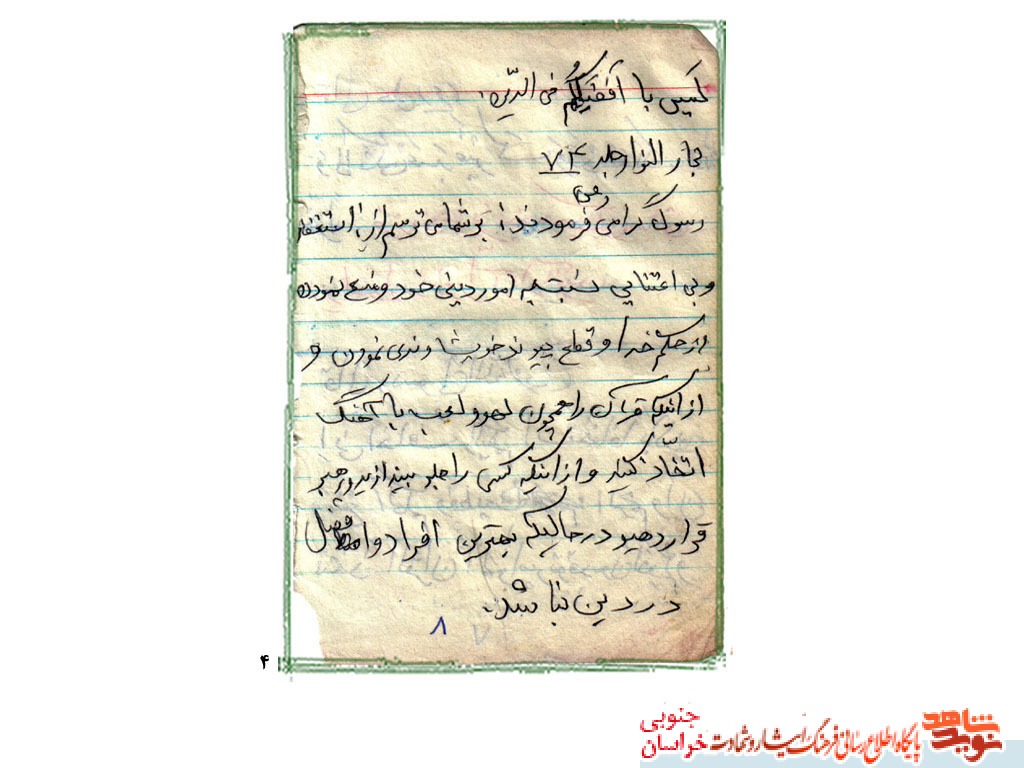 لیس با فقیکم فی الدّین.
بحار النوار جلد ۷۴
رسول گرامی فرمودند؛ بر شما می ترسم از: استخفاف
و بی اعتنایی نسبت به امور دینی خود و منع نمودن
از حکم خدا و قطع پیوند خویشاوندی نمودن و
از اینکه قرآن را همچون لهو و لعب با آهنگ
اتخّاذ کنید و از اینکه کسی را جلو بیندازید و رهبر
قرار دهید در حالیکه بهترین افراد و افضل
در دین نباشد.
۸
۴
نوید شاهد پایگاه اطلاع رسانی فرهنگ ایثار و شهادت
خراسان جنوبی